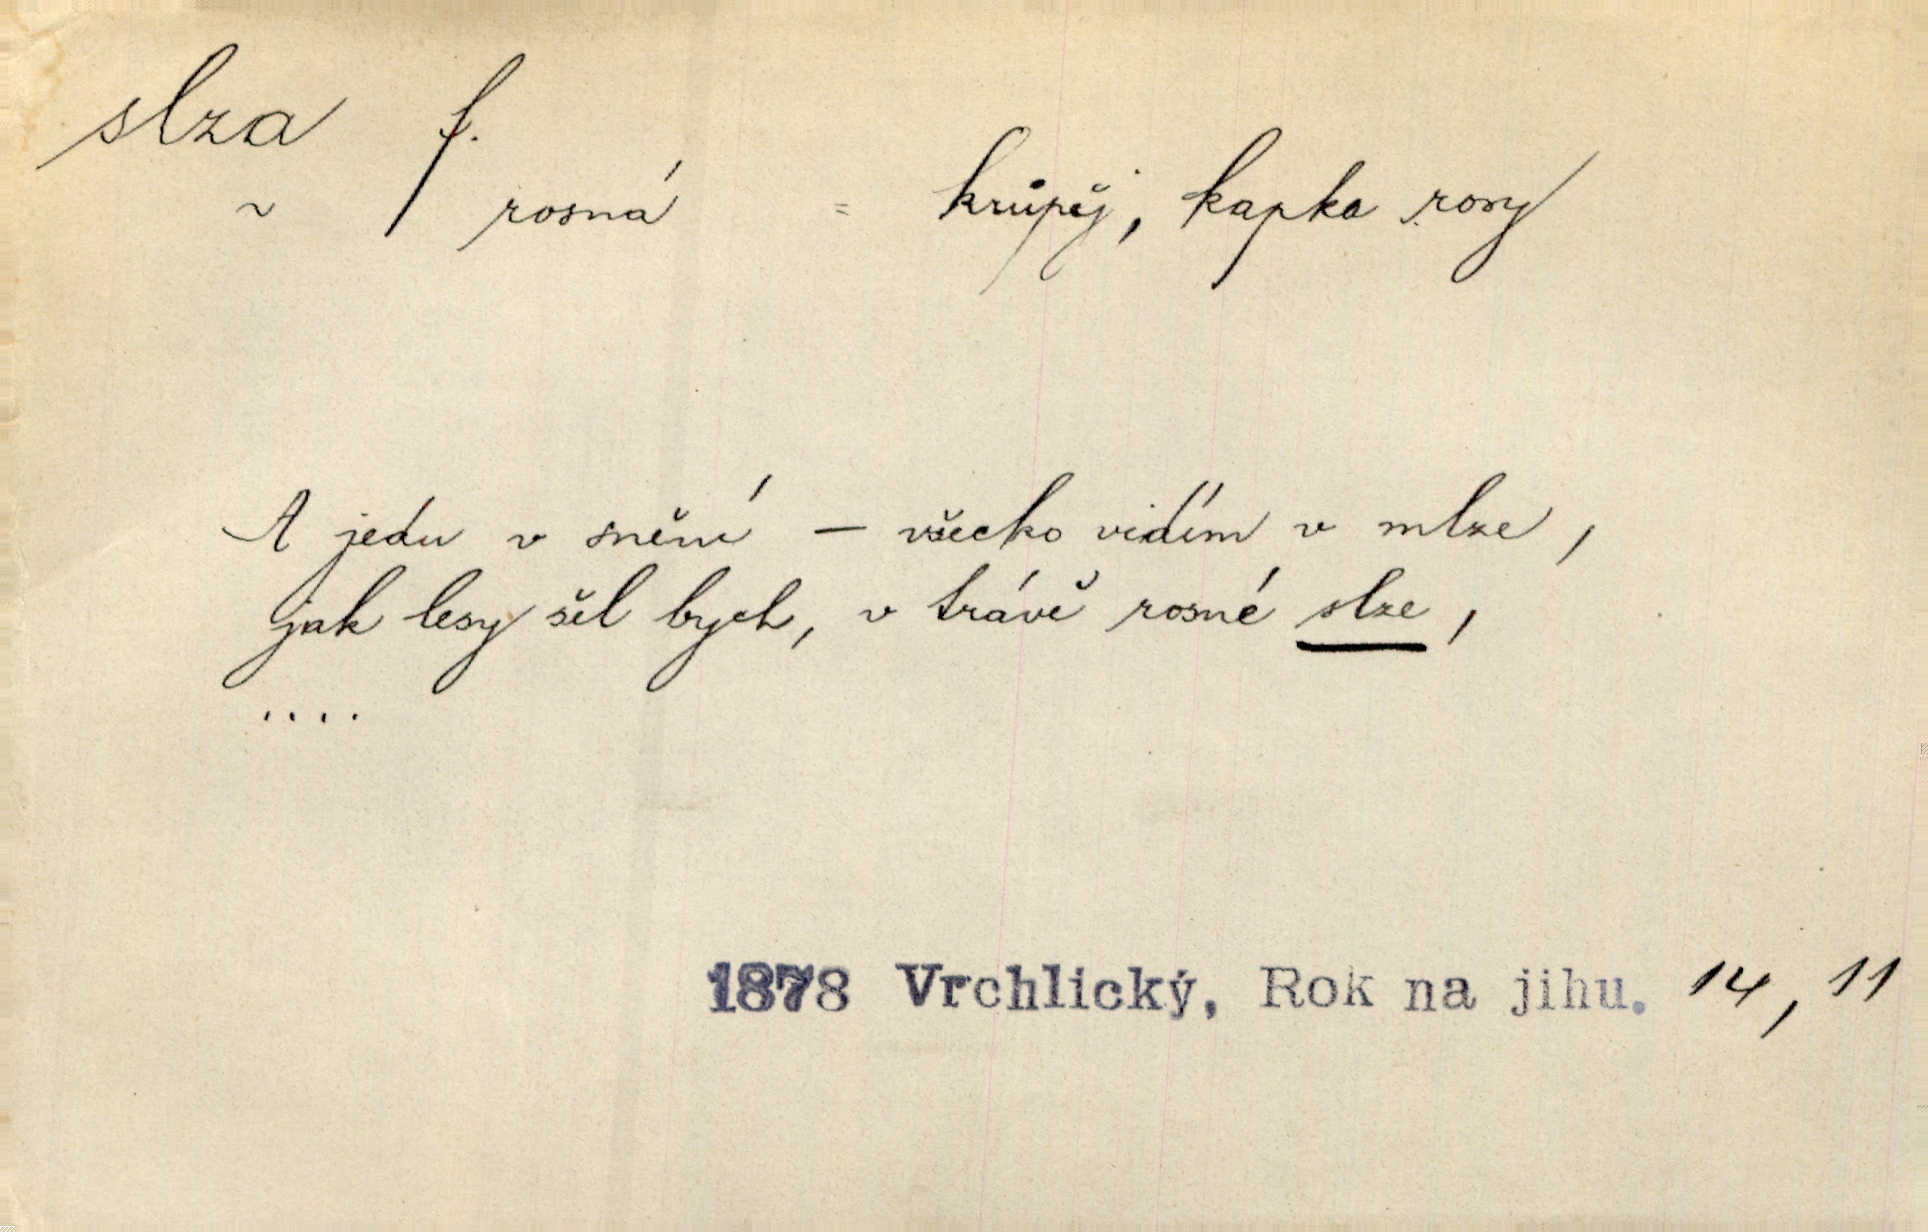 slza f.
~ rosná = krůpěj, kapka rosy
A jedu v snění – všecko vidím v mlze,
jak lesy šel bych, v trávě rosné slze,
....
1878 Vrchlický, Rok na jihu. 14, 11